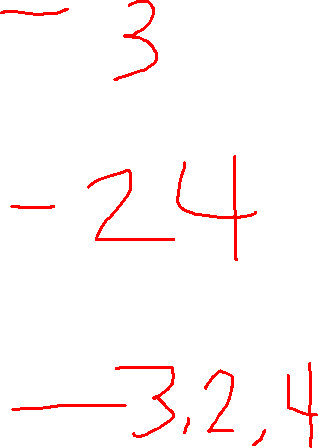 - 3
- 24
- 3,2,4